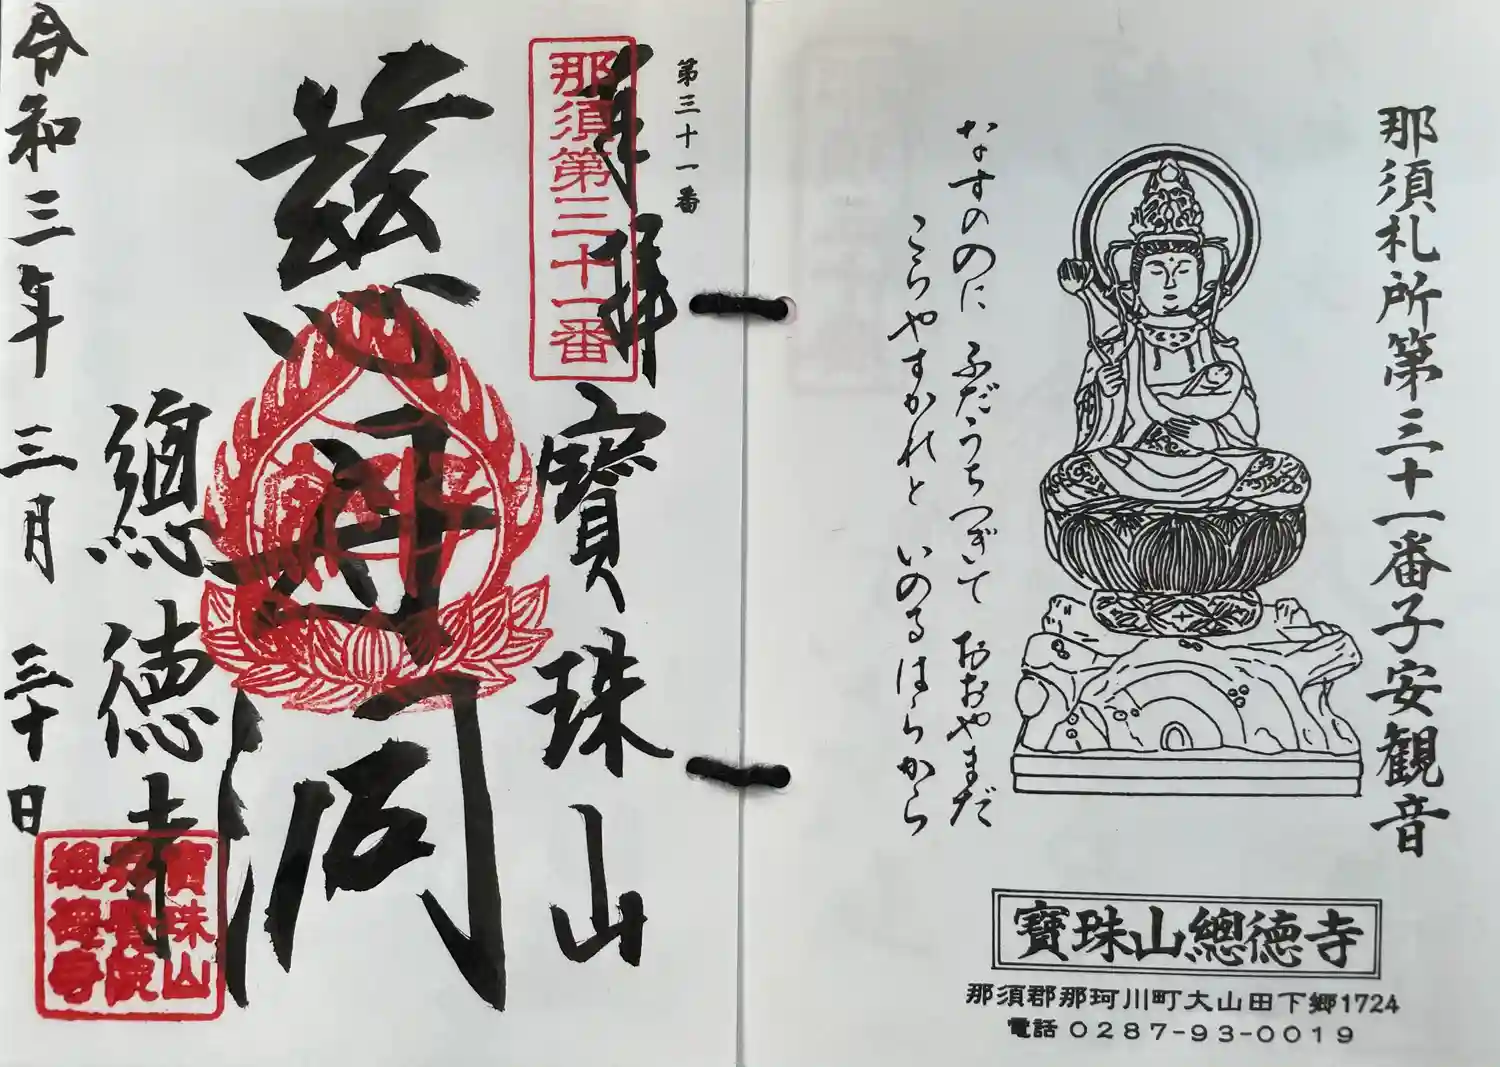 那須札所第三十一番子安観音
なすののに ふだうちつぎて おおやまだ
こらやすかれと いのるはらから
寶珠山總德寺
那須郡那珂川町大山田下郷1724
電話 0287-93-0019
第三十一番
奉拝
那須第三十一番
寶珠山
慈母閣
總德寺
令和三年 三月 三十日
寶珠山
總德寺